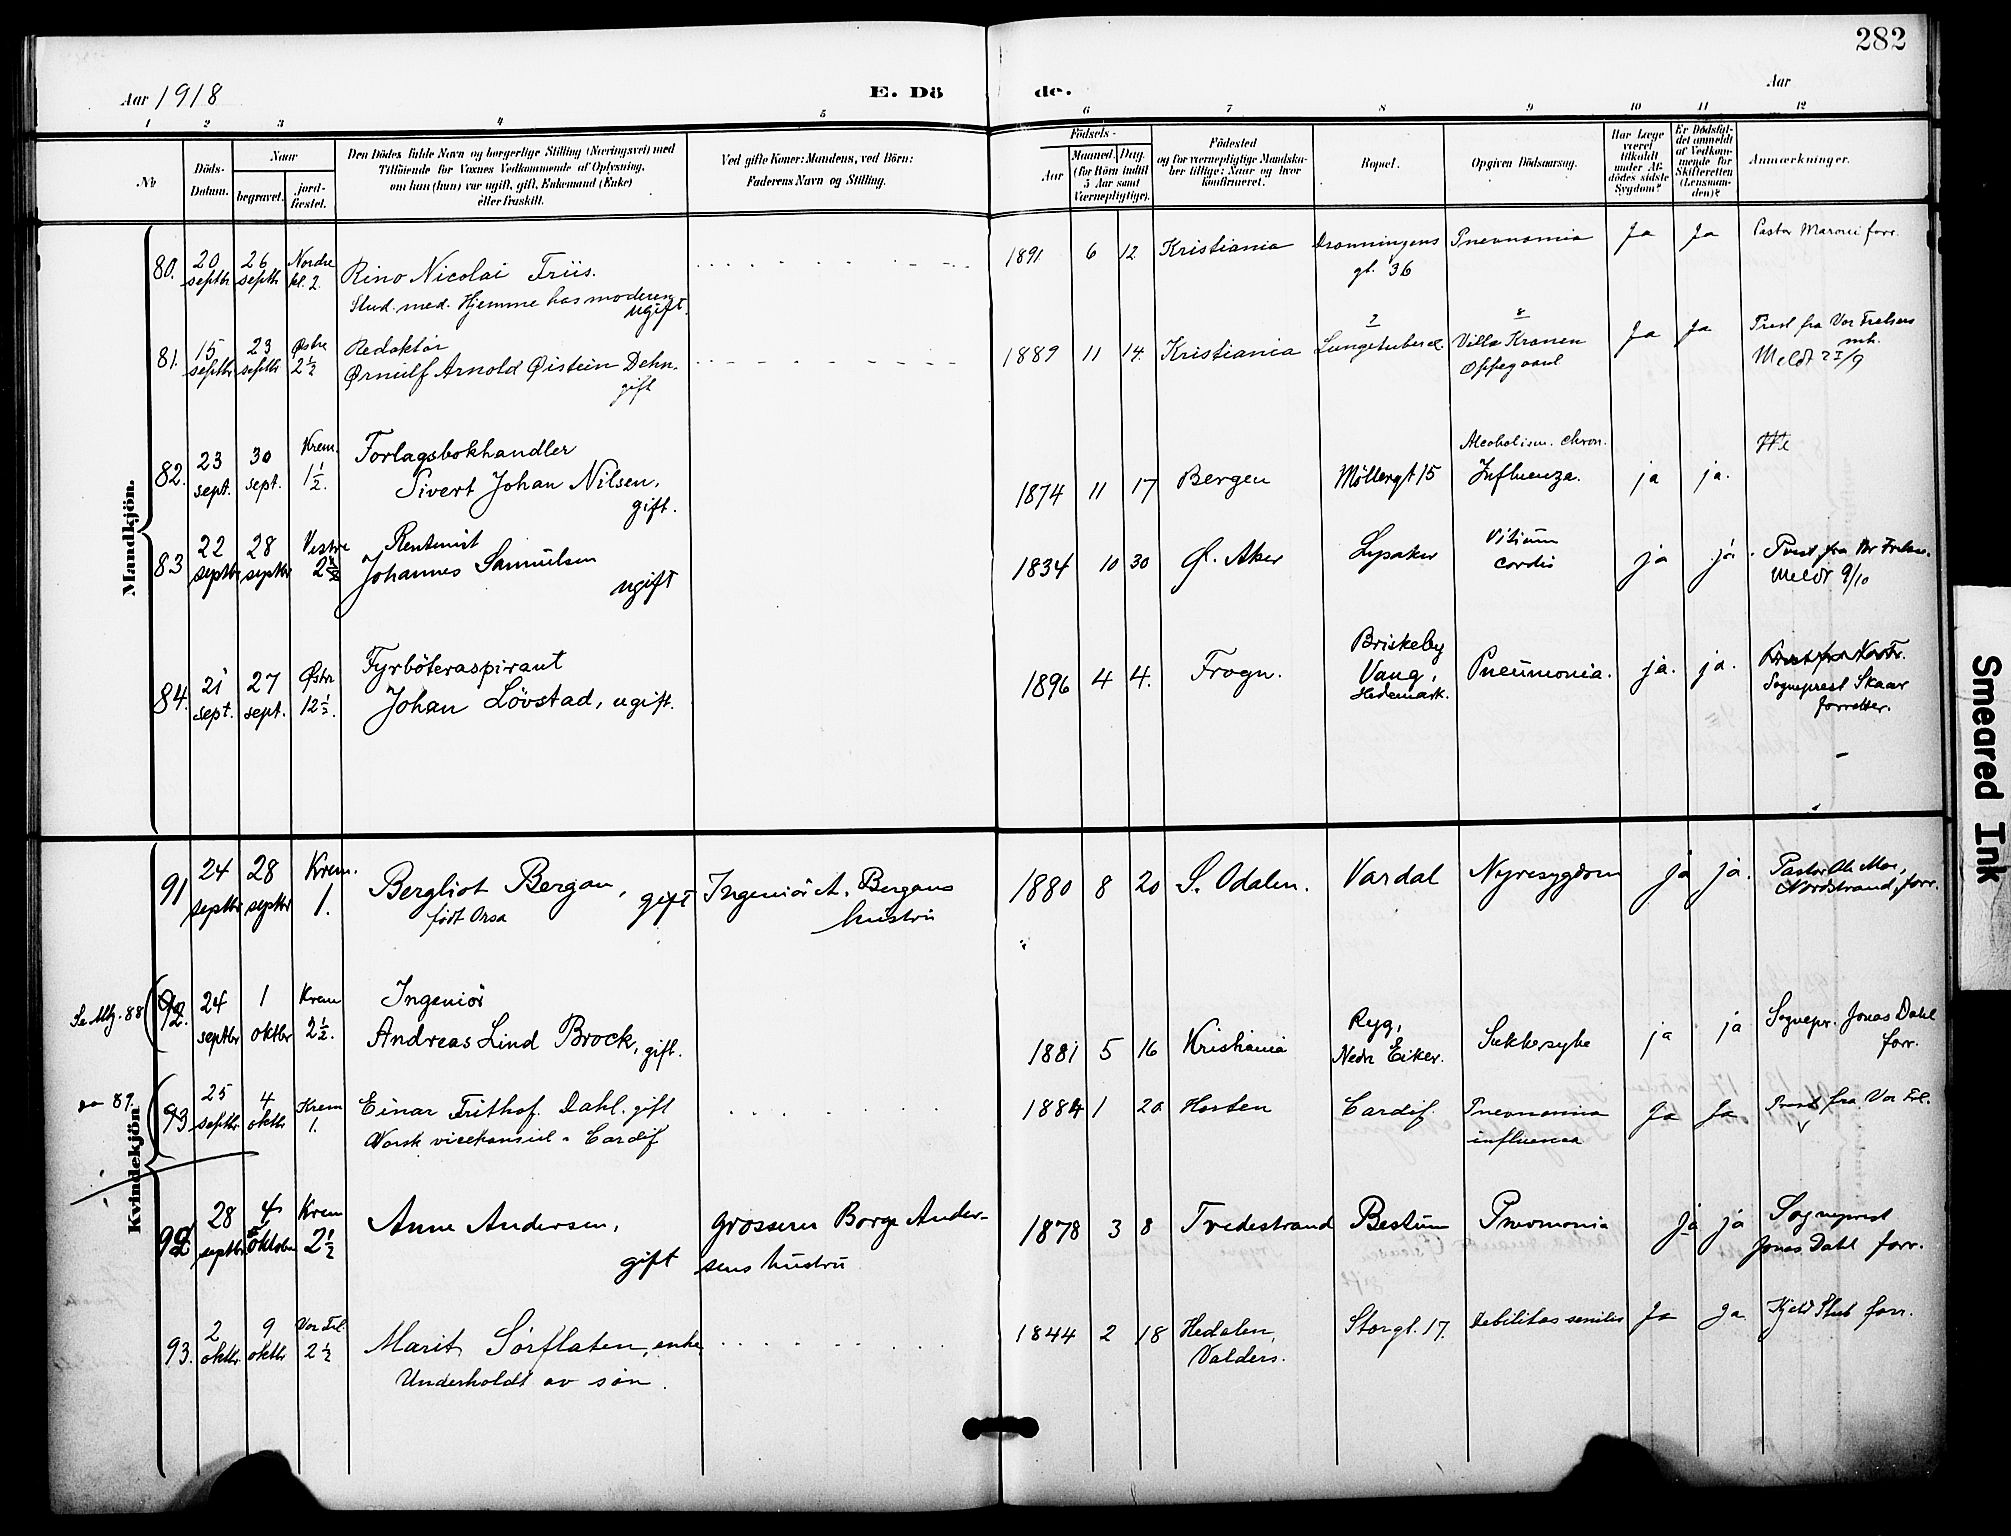 282
Aar 1918
E. Dö
de.
Aar
1 2 3 4 5 6 7 8 9 10 11 12
No
Döds-
Datum.
Naar
begravet.
jord-
fæstet.
Den Dödes fulde Navn og borgerlige Stilling (Næringsvei) med
Tilföiende for Voxnes Vedkommende af Oplysning,
om han (hun) var ugift, gift, Enkemand (Enke)
eller fraskilt.
Ved gifte Koner: Mandens, ved Börn:
Faderens Navn og Stilling.
Födsels-
Aar
Maaned. Dag.
(for Börn indtil
5 Aar samt
Værnepligtige).
Födested
og for værnepligtige Mandska-
ber tillige: Naar og hvor
konfirmeret.
Bopæl.
Opgiven Dödsaarsag.
Har Læge
været
tilkaldt
under Af-
dödes sidste
Sygdom?
Er Dödsfal-
det anmeldt
af Vedkom-
mende for
Skifteretten
(Lensman-
den)?
Anmærkninger.
Mandkjön.
80. 20 septbr 26 septbr Nordre kl. 2.
Rino Nicolai Friis.
Stud. med. Hjemme hos moderen
ugift.
1891 6 12 Kristiania Dronningens
gt. 36
Pnevnomia Ja Ja Pastor Maroni forr.
81. 15 septbr 23 septbr Østre 2½
Redaktør
Ørnulf Arnold Øistein Dehn.
gift
1889 11 14. Kristiania
2
Lungetuberel.
8
Villa Kranen
Oppegaard
Ja Ja Prest fra Vor Frelsers
mh.
Meldt 21/9
82. 23 sept. 30 sept. Krem. 1½.
Forlagsbokhandler
Sivert Johan Nilsen,
gift.
1874 11 17 Bergen Möllergt 15
Alcoholism. chron.
Influenza.
ja ja.
83 22 septbr 28 septbr Vestre 2½
Rentenist
Johannes Samuelsen
ugift
1834 10 30 Ø. Aker Lysaker
Vitium
cordis
ja ja. Prest fra Vor Frelser.
Meldt 9/10
84. 21 sept. 27 sept. Østre 12½.
Fyrböteraspirant
Johan Lövstad, ugift.
1896 4 4. Frogn.
Briskeby
Vang,
Hedemark.
Pneumonia. ja. ja.
Sogneprest Skaar
forretter.
Kvindekjön
91 24 septbr 28 septbr Krem. 1.
Bergliot Bergan, gift
født Orsa
Ingeniör A. Bergans
hustru
1880 8 20 S. Odalen. Vardal Nyresygdom ja ja. Pastor Ole Moe,
Nordstrand, forr.
Se Mkj. 88
92. 24 septbr 1 oktbr Krem 2½.
Ingeniör
Andreas Lind Brock, gift.
1881 5 16 Kristiania
Ryg,
Nedr Eiker.
Sukkersyke ja ja Sognepr. Jonas Dahl
forr.
do 89.
93 25 septbr 4 oktbr Krem 1.
Einar Frithof. Dahl. gift
Norsk vicekonsul i Cardif
1884 1 20 Horten Cardif.
Pnevnomia
influensa
Ja Ja Prest fra Vor Frl.
92 28 septbr 4 oktober Krem 2½
Anne Andersen,
gift
grosserer Borge Ander-
sens hustru
1878 3 8 Tvedestrand Bestum Pnevmonia ja ja Sogneprest
Jonas Dahl forr.
93. 2 oktbr. 9 oktbr Vor Frl. 2½
Marit Sørflaten, enke
Underholdt av søn.
1844 2 18 Hedalen,
Valders.
Storgt. 17. Debilitas senilis Ja Ja Kjeld Stub forr.
Smeared Ink